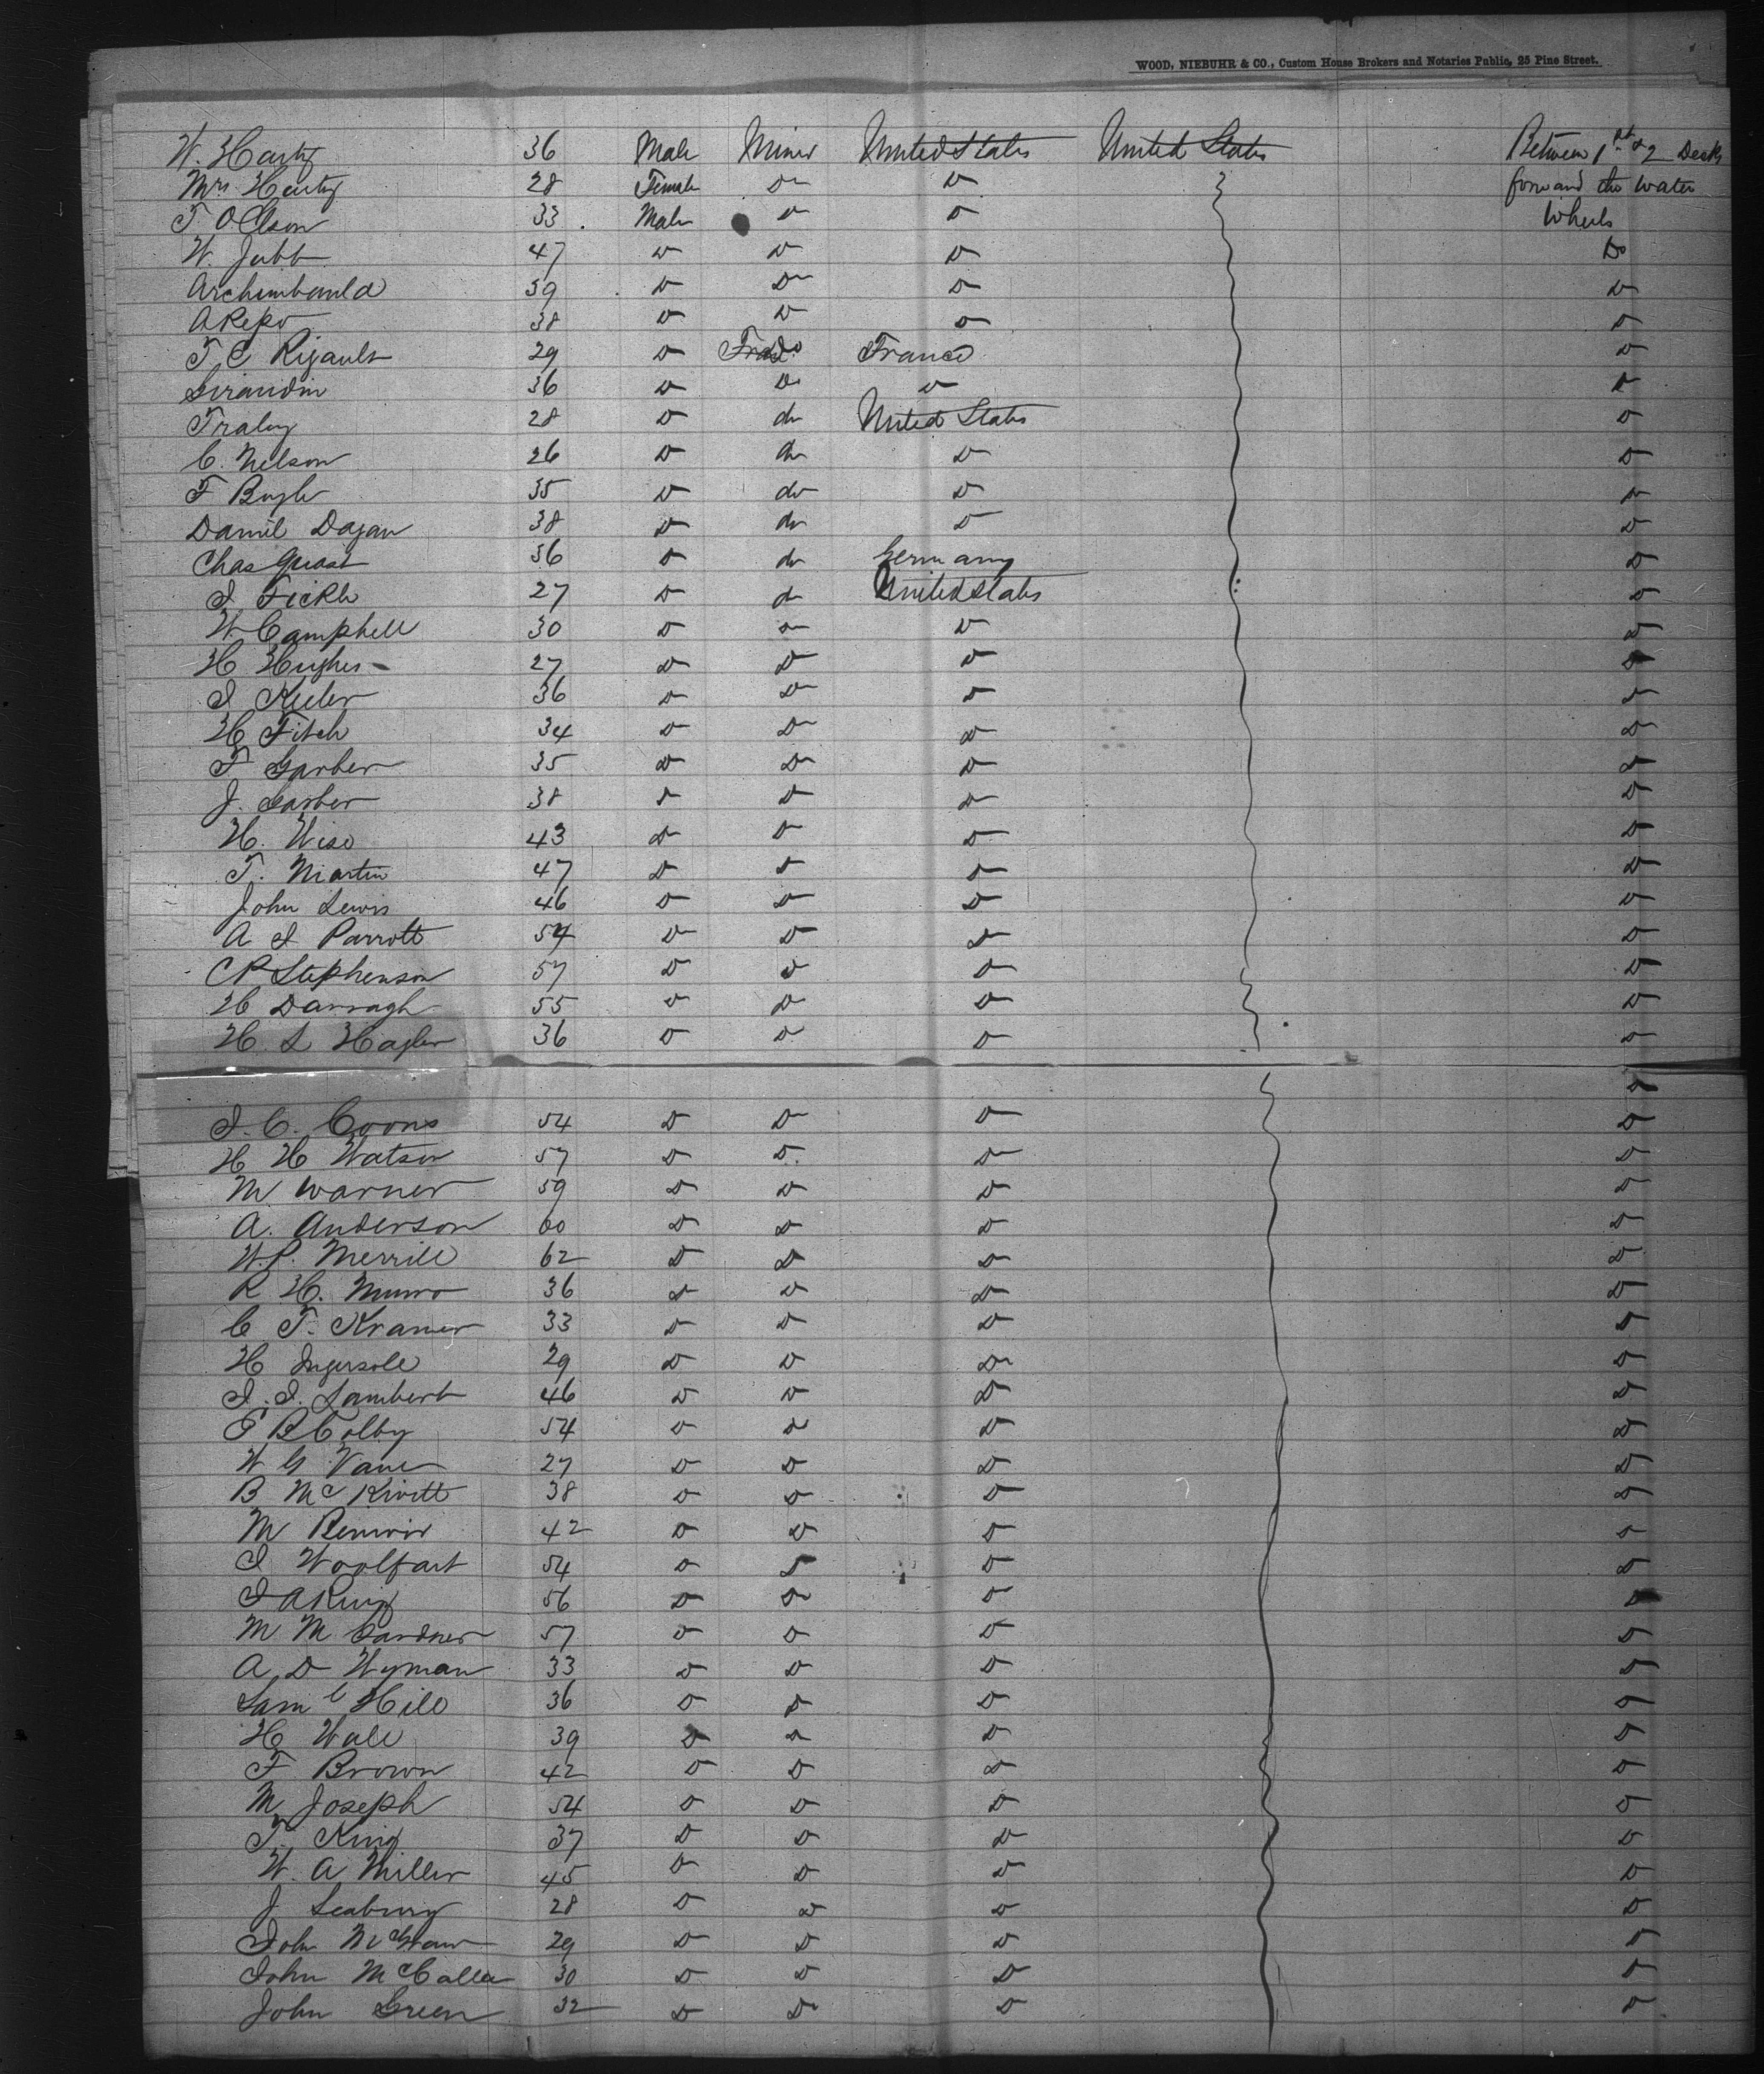 WOOD, NIEBUHR & CO., Custom House Brokers and Notaries Public, 25 Pine Street.
W. Harty 36 Male Miner United States United States Between 1st & 2 Decks
Mrs Harty 28 Female Do Do forward the Water
T Ollson 33 Male Do Do Wheels
W. Jubb 47 Do Do Do Do
Archimbauld 39 Do Do Do Do
38 Do Do Do Do
T C Rigault 29 Do France Do
Girandin 36 Do Do Do Do
Traley 28 Do do United States Do
C. Nelson 26 Do do Do Do
F 35 Do do Do Do
Daniel Dagan 38 Do do Do Do
Chas Quast 36 Do do Germany Do
I Fickle 27 Do do United States Do
W. Campbell 30 Do Do Do Do
H Hughes 27 Do Do Do Do
I Keeler 36 Do Do Do Do
H Fitch 34 Do Do Do Do
F Garber 35 Do Do Do Do
J. Garber 38 Do Do Do Do
H. Wise 43 Do Do Do Do
T. Martin 47 Do Do Do Do
John Lewis 46 Do Do Do Do
A I Parrott 54 Do Do Do Do
C P Stephenson 57 Do Do Do Do
H Darragh 55 Do Do Do Do
H. L Hagler 36 Do Do Do Do
Do
I. C. Coons 54 Do Do Do Do
H H Watson 57 Do Do Do Do
M Warner 59 Do Do Do Do
A. Anderson 60 Do Do Do Do
W. P. Merrill 62 Do Do Do Do
R H. Munro 36 Do Do Do Do
C T. Kramer 33 Do Do Do Do
H Ingersole 29 Do Do Do Do
I. I. Lambert 46 Do Do Do Do
P B Colby 54 Do Do Do Do
W G Vane 27 Do Do Do Do
B McKivitt 38 Do Do Do Do
M 42 Do Do Do Do
I Woolfart 54 Do Do Do Do
I A King 56 Do Do Do Do
M M Gardner 57 Do Do Do Do
A D Wyman 33 Do Do Do Do
Saml Hill 36 Do Do Do Do
H Wall 39 Do Do Do Do
F Brown 42 Do Do Do Do
M Joseph 54 Do Do Do Do
T. King 37 Do Do Do Do
W. A Miller 45 Do Do Do Do
J Seabury 28 Do Do Do Do
John McGraw 29 Do Do Do Do
John McCalla 30 Do Do Do Do
John Green 32 Do Do Do Do